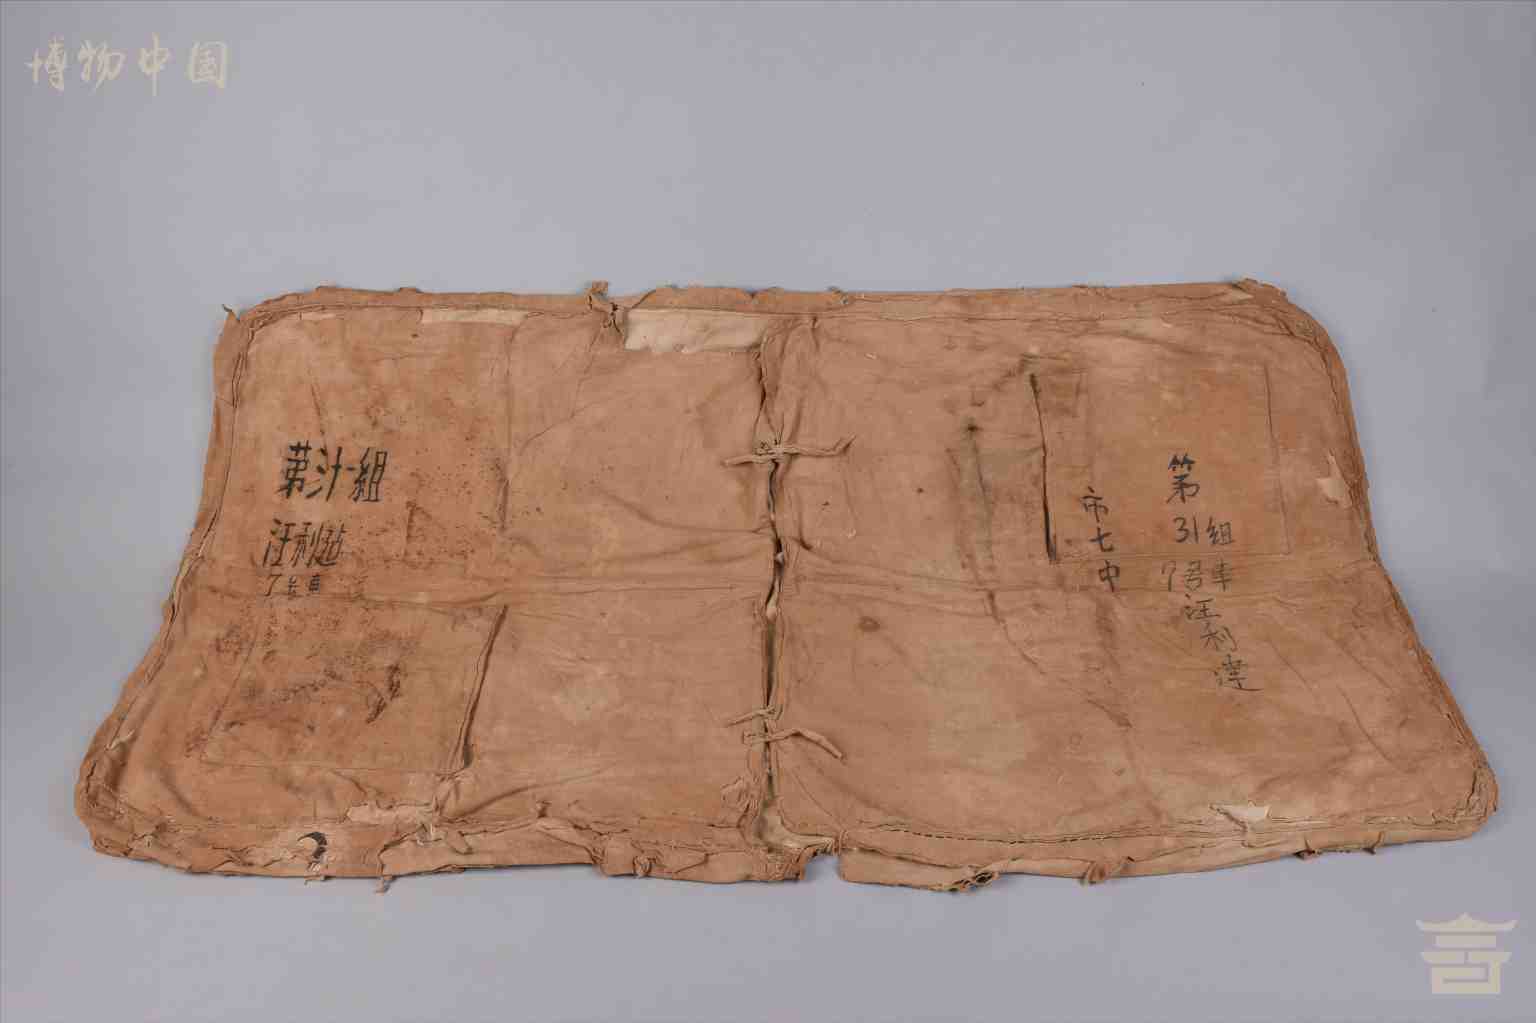 博物中国
第卅一組
汪利達
7号車
市七中
第
31組
7号車
汪利達